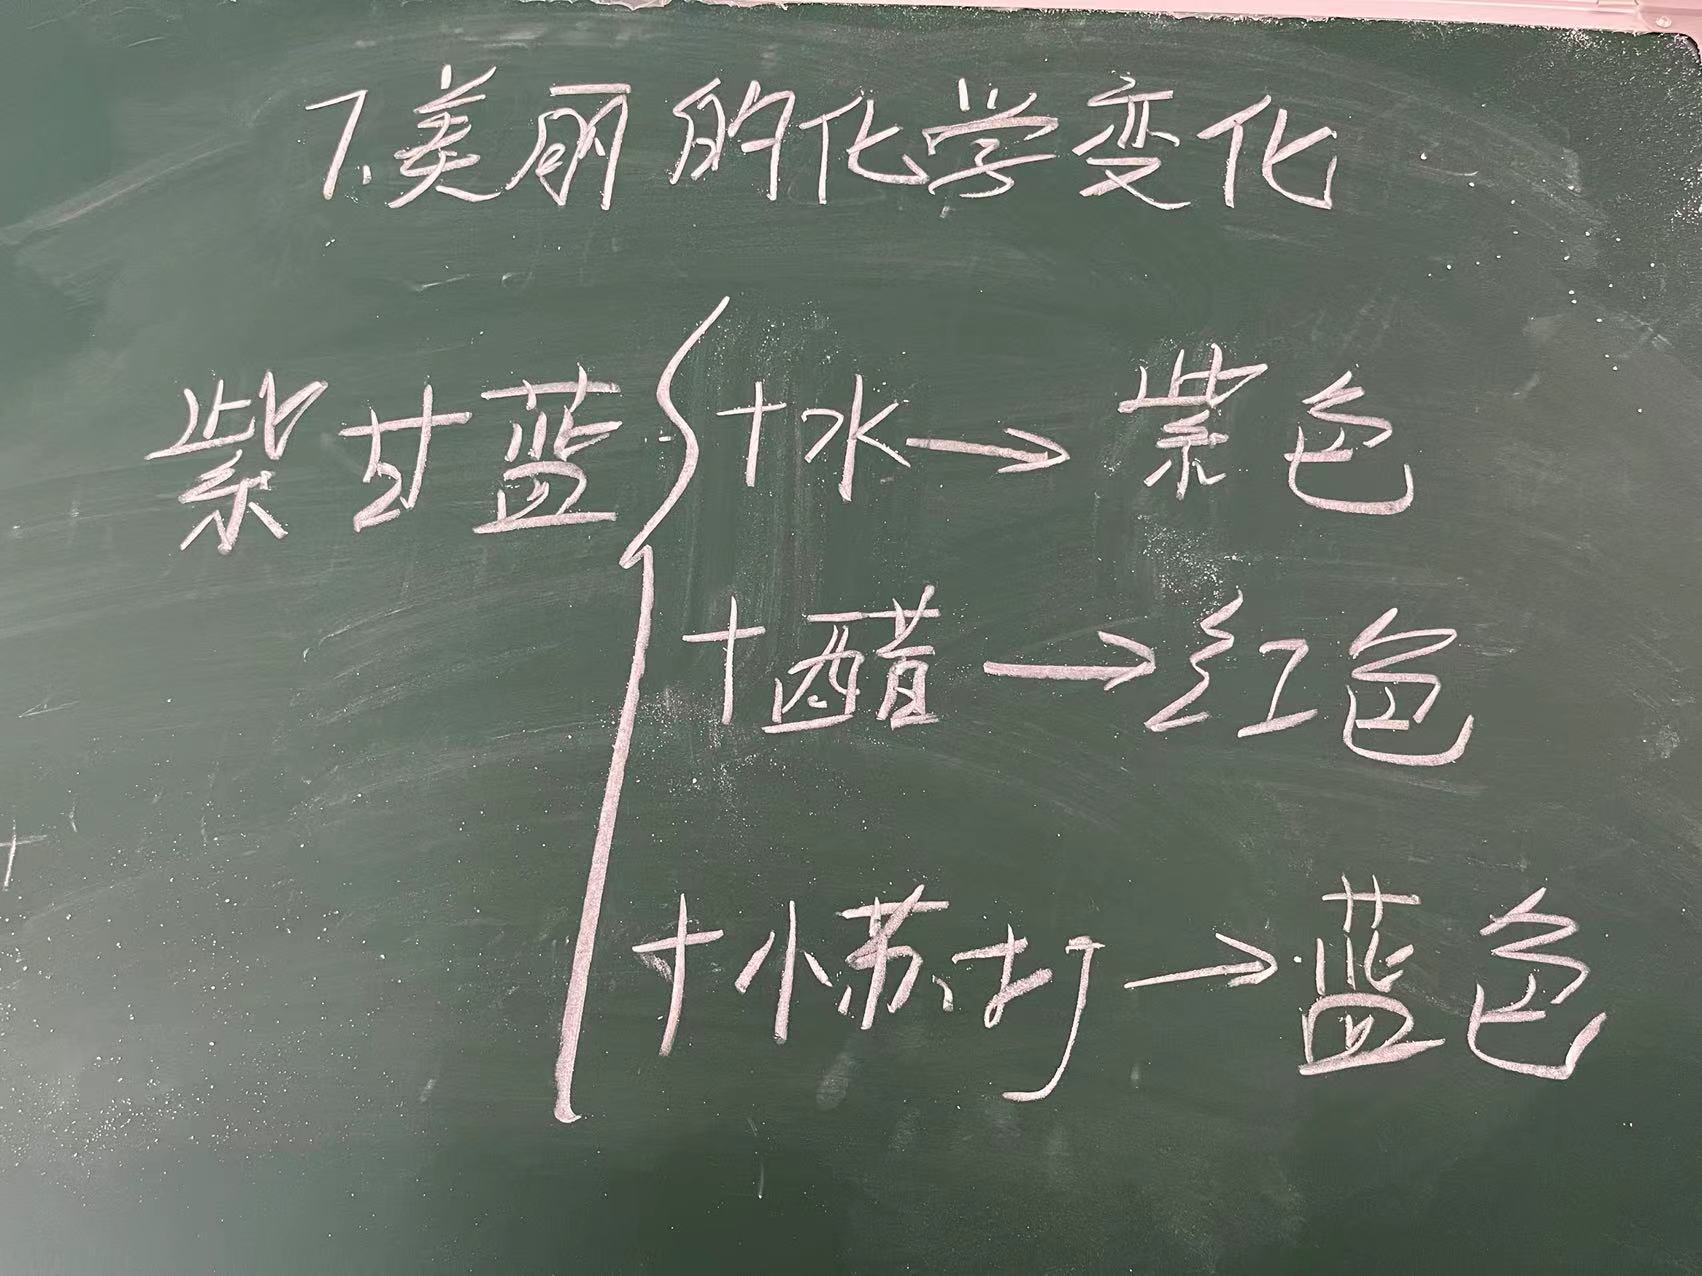 7.美丽的化学变化
紫甘蓝{+水→紫色
+醋→红色
+小苏打→蓝色